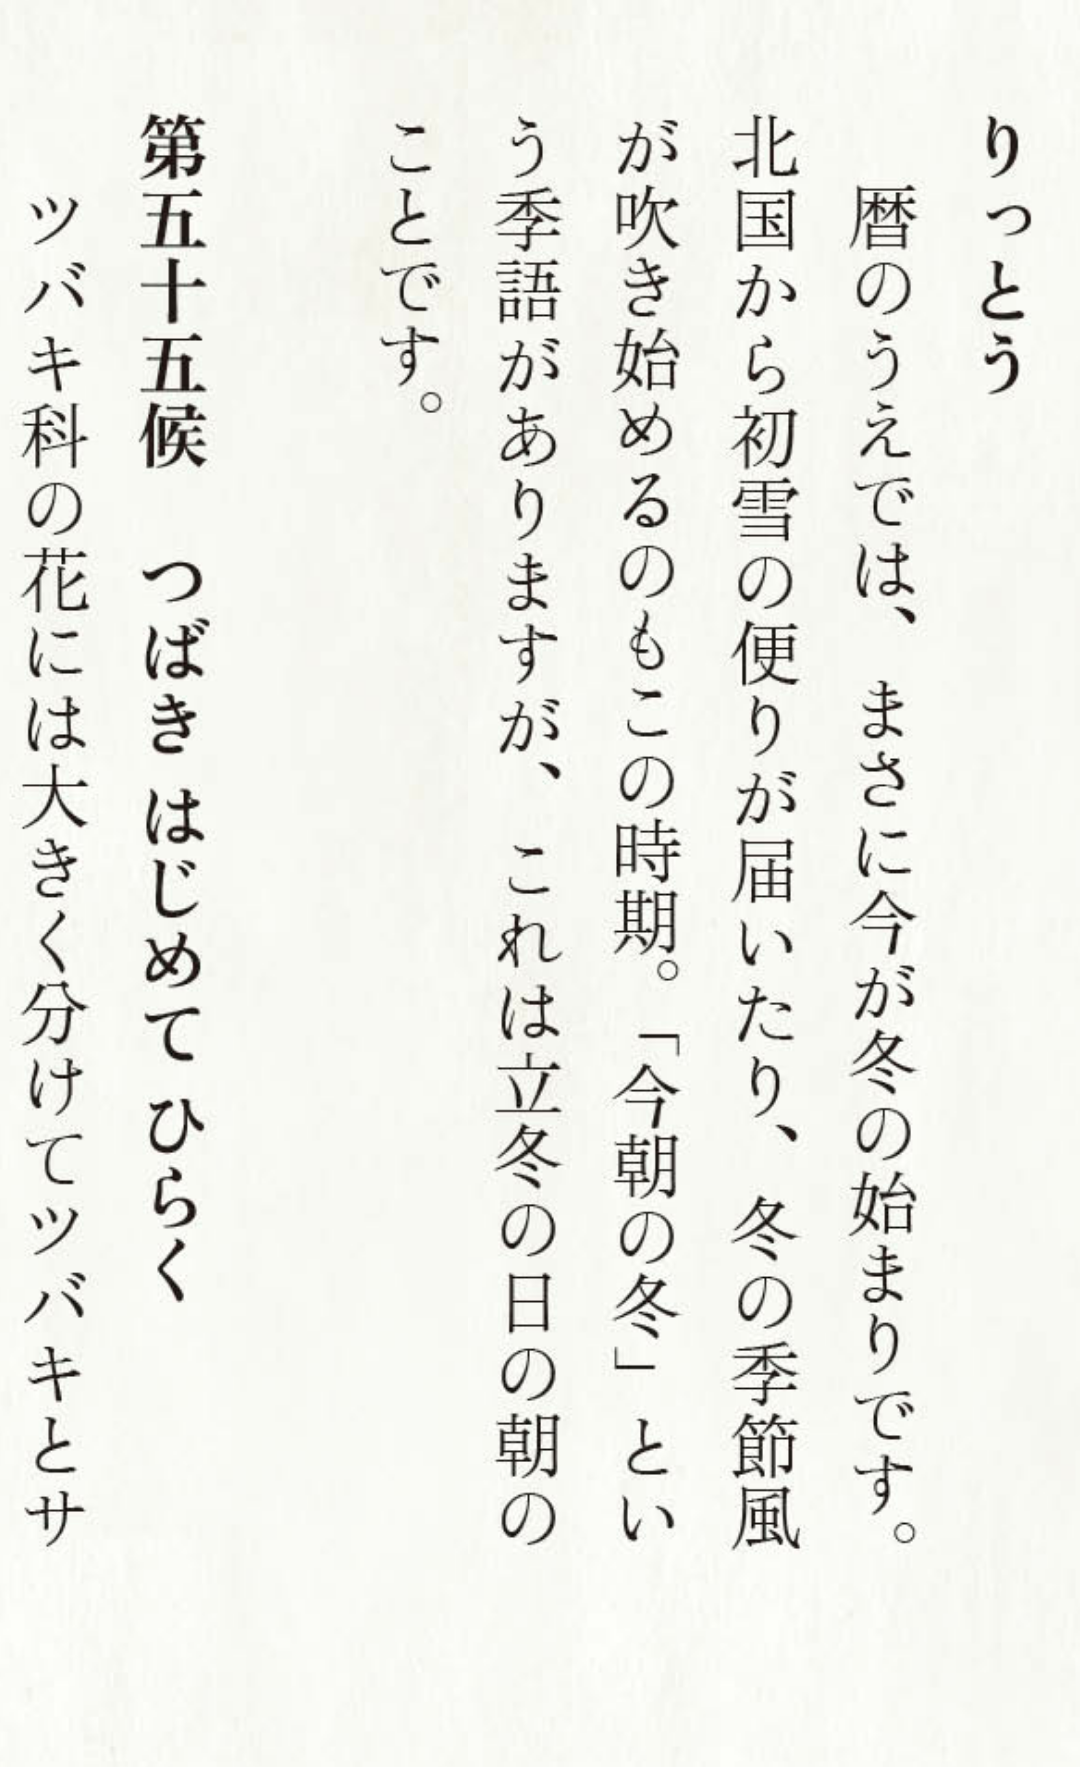 りっとう
暦のうえでは、まさに今が冬の始まりです。
北国から初雪の便りが届いたり、冬の季節風
が吹き始めるのもこの時期。「今朝の冬」とい
う季語がありますが、これは立冬の日の朝の
ことです。
第五十五候　つばき はじめて ひらく
ツバキ科の花には大きく分けてツバキとサ